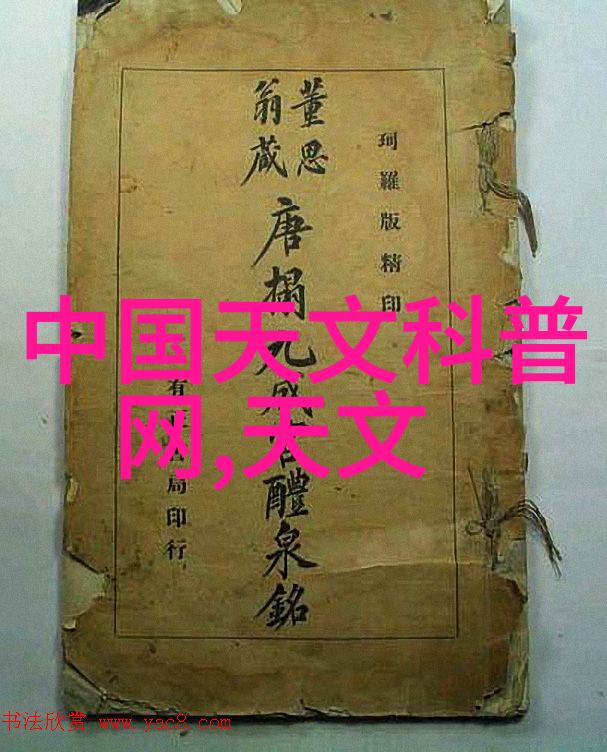 珂羅版精印
董思
翁藏
唐搨九成宮醴泉銘
有正書局印行
中国天文科普
网,天文
书法欣赏 www.yac8.com